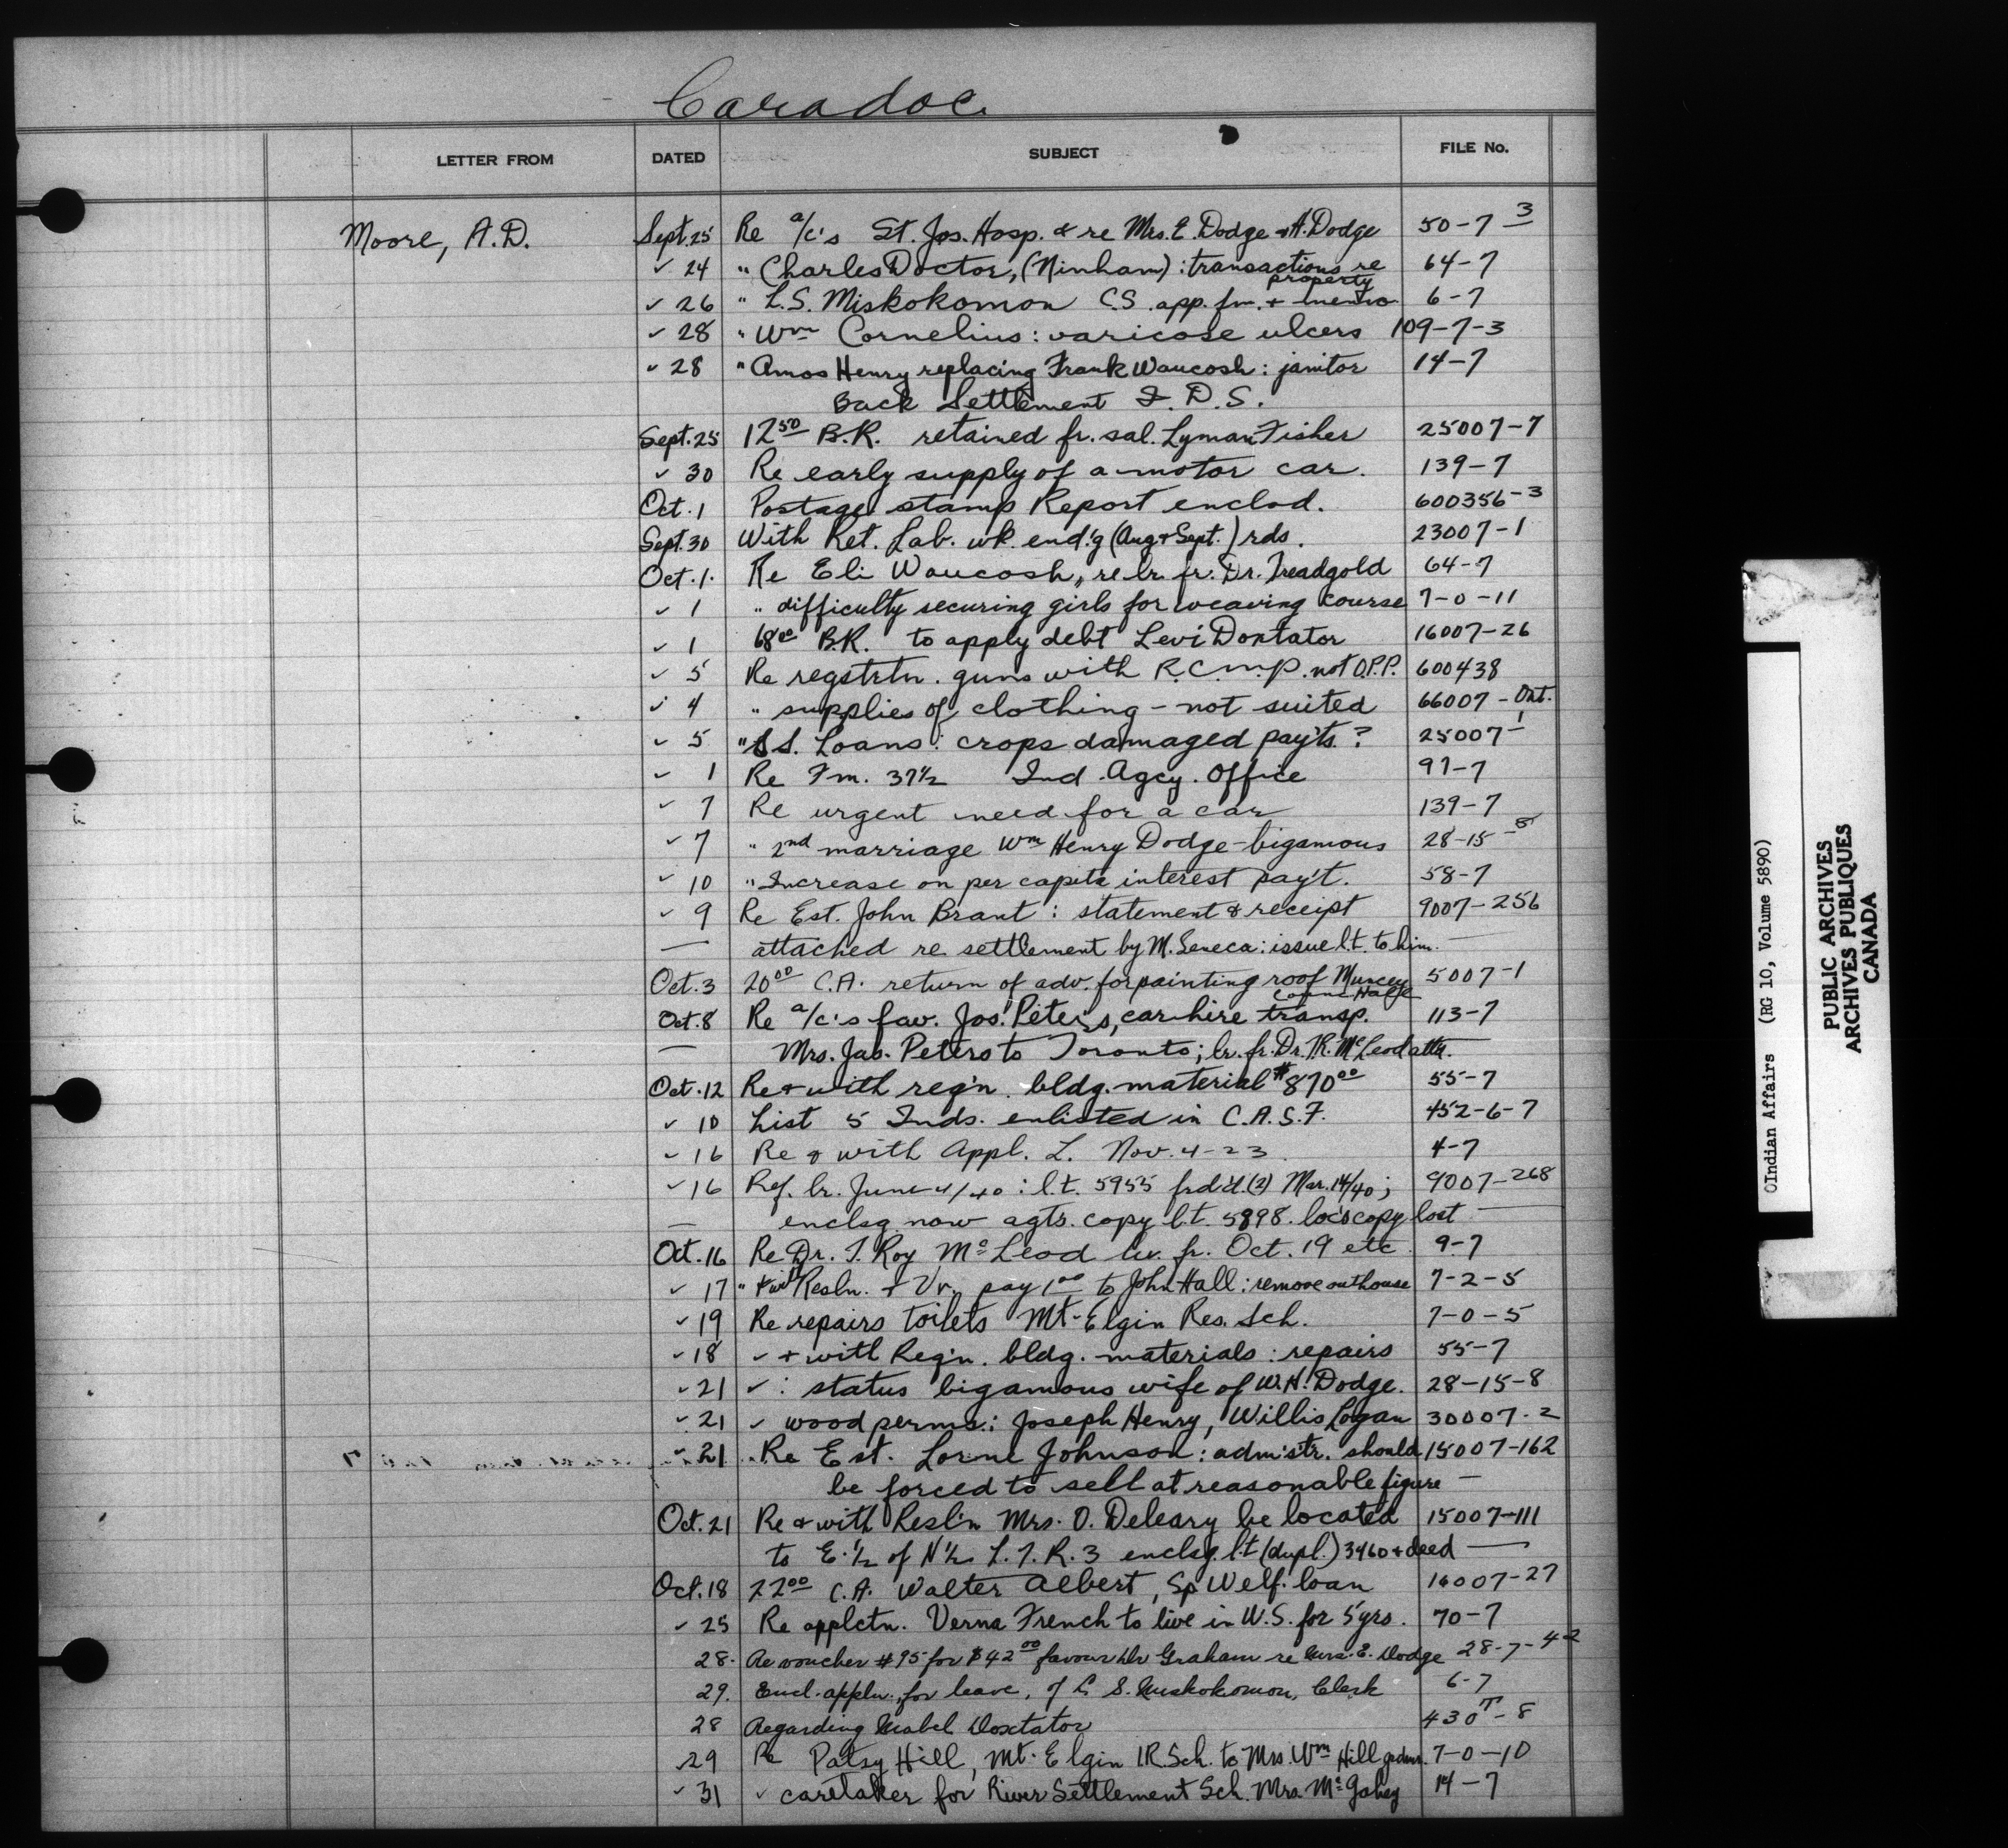 Caradoc
LETTER FROM DATED SUBJECT FILE No.
Moore, A.D. Sept. 25 Re a/c's St. Jos. Hosp. & re Mrs. E. Dodge & A. Dodge 50-7-3
✓ 24 " Charles Doctor, (Ninham): transactions re property 64-7
✓ 26 " L.S. Miskokomon C.S. app. fm. + memo 6-7
✓ 28 " Wm Cornelius: varicose ulcers 109-7-3
✓ 28 " Amos Henry replacing Frank Waucosh: janitor 14-7
Back Settlement I.D.S.
Sept. 25 12 50 B.R. retained fr. sal. Lyman Fisher 25007-7
✓ 30 Re early supply of a motor car. 139-7
Oct. 1 Postage stamp Report enclod. 600356-3
Sept. 30 With Ret. Lab. wk. end'g (Aug + Sept.) rds. 23007-1
Oct. 1. Re Eli Waucosh, re lr. fr. Dr. Treadgold 64-7
✓ 1 " difficulty securing girls for weaving course 7-0-11
✓ 1 68 00 B.R. to apply debt Levi Doxtator 16007-26
✓ 5 Re regstrtn. guns with R.C.M.P. not O.P.P. 600438
✓ 4 " supplies of clothing - not suited 66007-Ont.
✓ 5 " S.S. Loans: crops damaged pay'ts? 25007-1
✓ 1 Re Fm. 37½ Ind. Agcy. Office 97-7
✓ 7 Re urgent need for a car 139-7
✓ 7 " 2nd marriage Wm Henry Dodge - bigamous 28-15-8
✓ 10 " Increase on per capita interest pay't. 58-7
✓ 9 Re Est. John Brant: statement & receipt 9007-256
— attached re settlement by M. Seneca: issue l.t. to him. —
Oct. 3 20 00 C.A. return of adv. for painting roof Muncey Counc Hall 5007-1
Oct. 8 Re a/c's fav. Jos. Peters, car hire transp. 113-7
— Mrs. Jas. Peters to Toronto; lr. fr. Dr. R. McLeod attd. —
Oct. 12 Re + with req'n. bldg. material $870 00 55-7
✓ 10 List 5 Inds. enlisted in C.A.S.F. 452-6-7
✓ 16 Re & with Appl. L. Nov. 4-23 4-7
✓ 16 Ref. lr. June 4/40: l.t. 5955 frd'd. (2) Mar. 14/40; 9007-268
— enclsg now agts. copy l.t. 5898. loc's copy lost —
Oct. 16 Re Dr. T. Roy McLeod lv. fr. Oct. 19 etc. 9-7
✓ 17 " + with Resln. + Vr. pay 1 00 to John Hall: remove outhouse 7-2-5
✓ 19 Re repairs toilets Mt. Elgin Res. Sch. 7-0-5
✓ 18 ✓ + with Req'n. bldg. materials: repairs 55-7
✓ 21 ✓: status bigamous wife of W.H. Dodge. 28-15-8
✓ 21 ✓ wood perms.: Joseph Henry, Willis Logan 30007-2
✓ 21 " Re Est. Lorne Johnson: admistr. should 15007-162
be forced to sell at reasonable figure —
Oct. 21 Re & with Resl'n Mrs. O. Deleary be located 15007-111
to E. ½ of N ½ L. 7. R. 3 enclsg. l.t. (dupl.) 3460 + deed —
Oct. 18 22 00 C.A. Walter Albert, Sp Welf. loan 16007-27
✓ 25 Re applctn. Verna French to live in U.S. for 5 yrs. 70-7
28. Re voucher #95 for $42 00 favour Dr Graham re Mrs. E. Dodge 28-7-4-2
29. Encl. appln. for leave, of L. S. Miskokomon, Clerk 6-7
28 Regarding Mabel Doxtator 430T-8
29 Re Patsy Hill, Mt. Elgin I.R. Sch. to Mrs. Wm Hill 7-0-10
✓ 31 ✓ caretaker for River Settlement Sch. Mrs. McGahey 14-7
OIndian Affairs (RG 10, Volume 5890)
PUBLIC ARCHIVES
ARCHIVES PUBLIQUES
CANADA